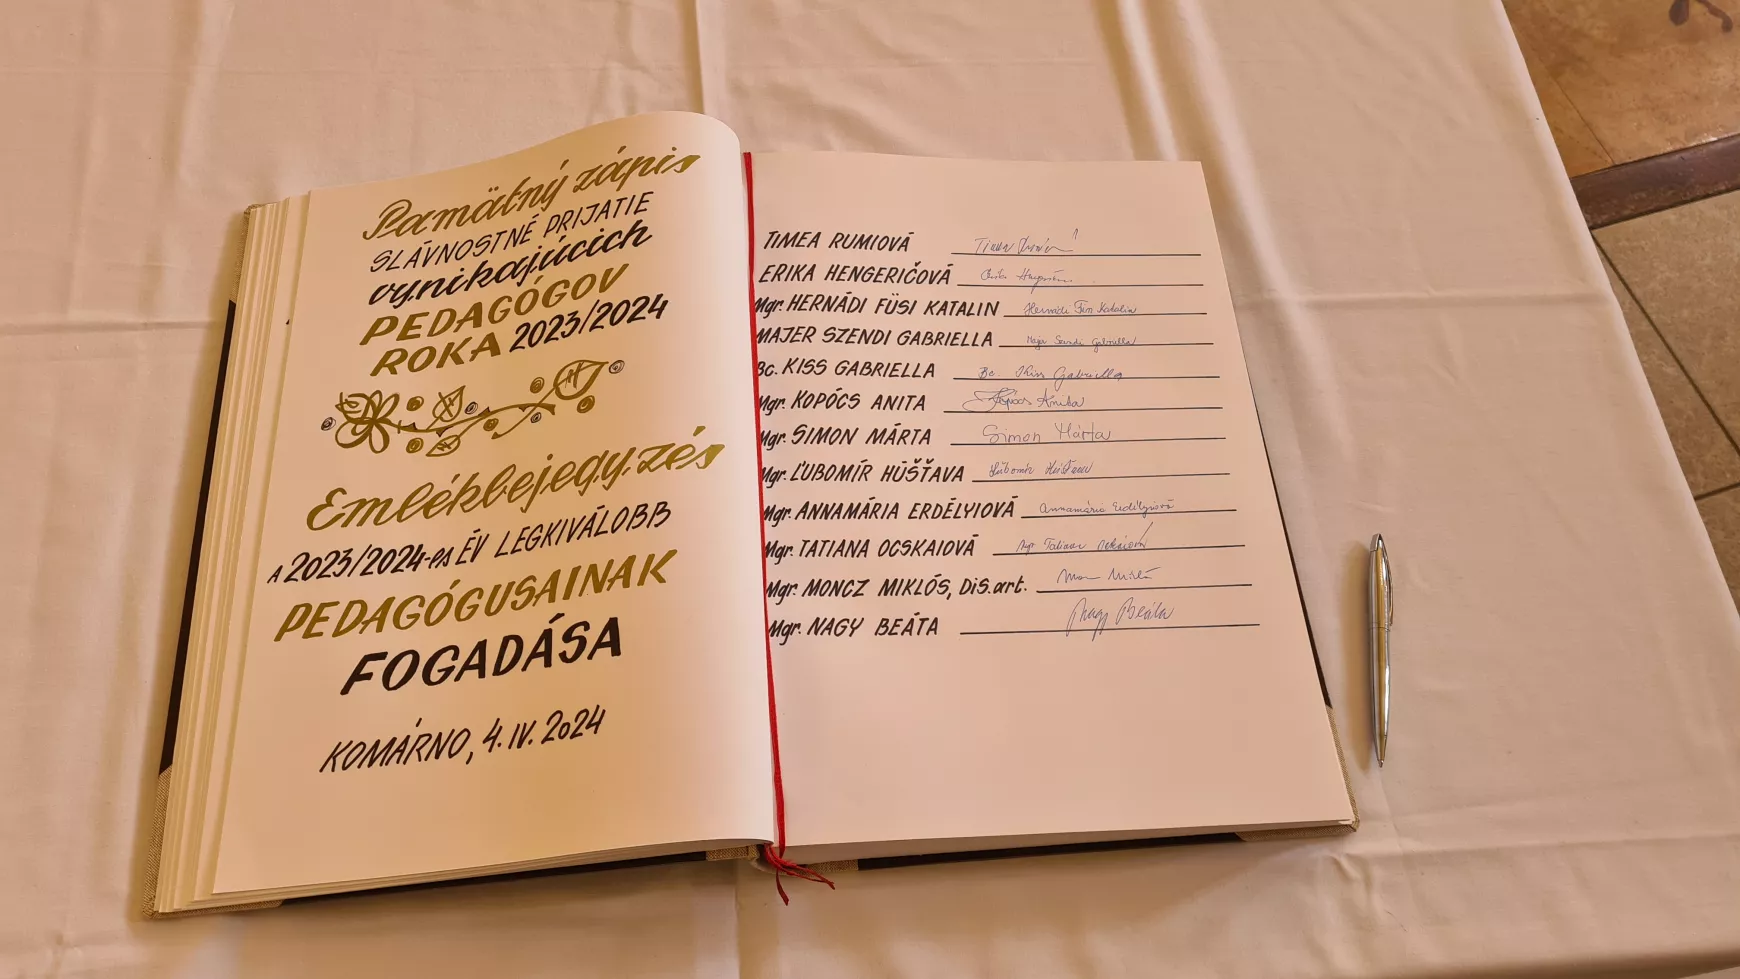 Pamätný zápis
SLÁVNOSTNÉ PRIJATIE
vynikajúcich
PEDAGÓGOV
ROKA 2023/2024
Emlékbejegyzés
A 2023/2024-ES ÉV LEGKIVÁLOBB
PEDAGÓGUSAINAK
FOGADÁSA
KOMÁRNO, 4. IV. 2024
TIMEA RUMIOVÁ
ERIKA HENGERIČOVÁ
Mgr. HERNÁDI FÜSI KATALIN Hernádi Füsi Katalin
MAJER SZENDI GABRIELLA Majer Szendi Gabriella
Bc. KISS GABRIELLA Bc. Kiss Gabriella
Mgr. KOPÓCS ANITA Kopócs Anita
Mgr. SIMON MÁRTA Simon Márta
Mgr. ĽUBOMÍR HÚŠŤAVA
Mgr. ANNAMÁRIA ERDÉLYIOVÁ Annamária Erdélyiová
Mgr. TATIANA OCSKAIOVÁ Mgr. Tatiana Ocskaiová
Mgr. MONCZ MIKLÓS, DiS.art.
Mgr. NAGY BEÁTA Nagy Beáta